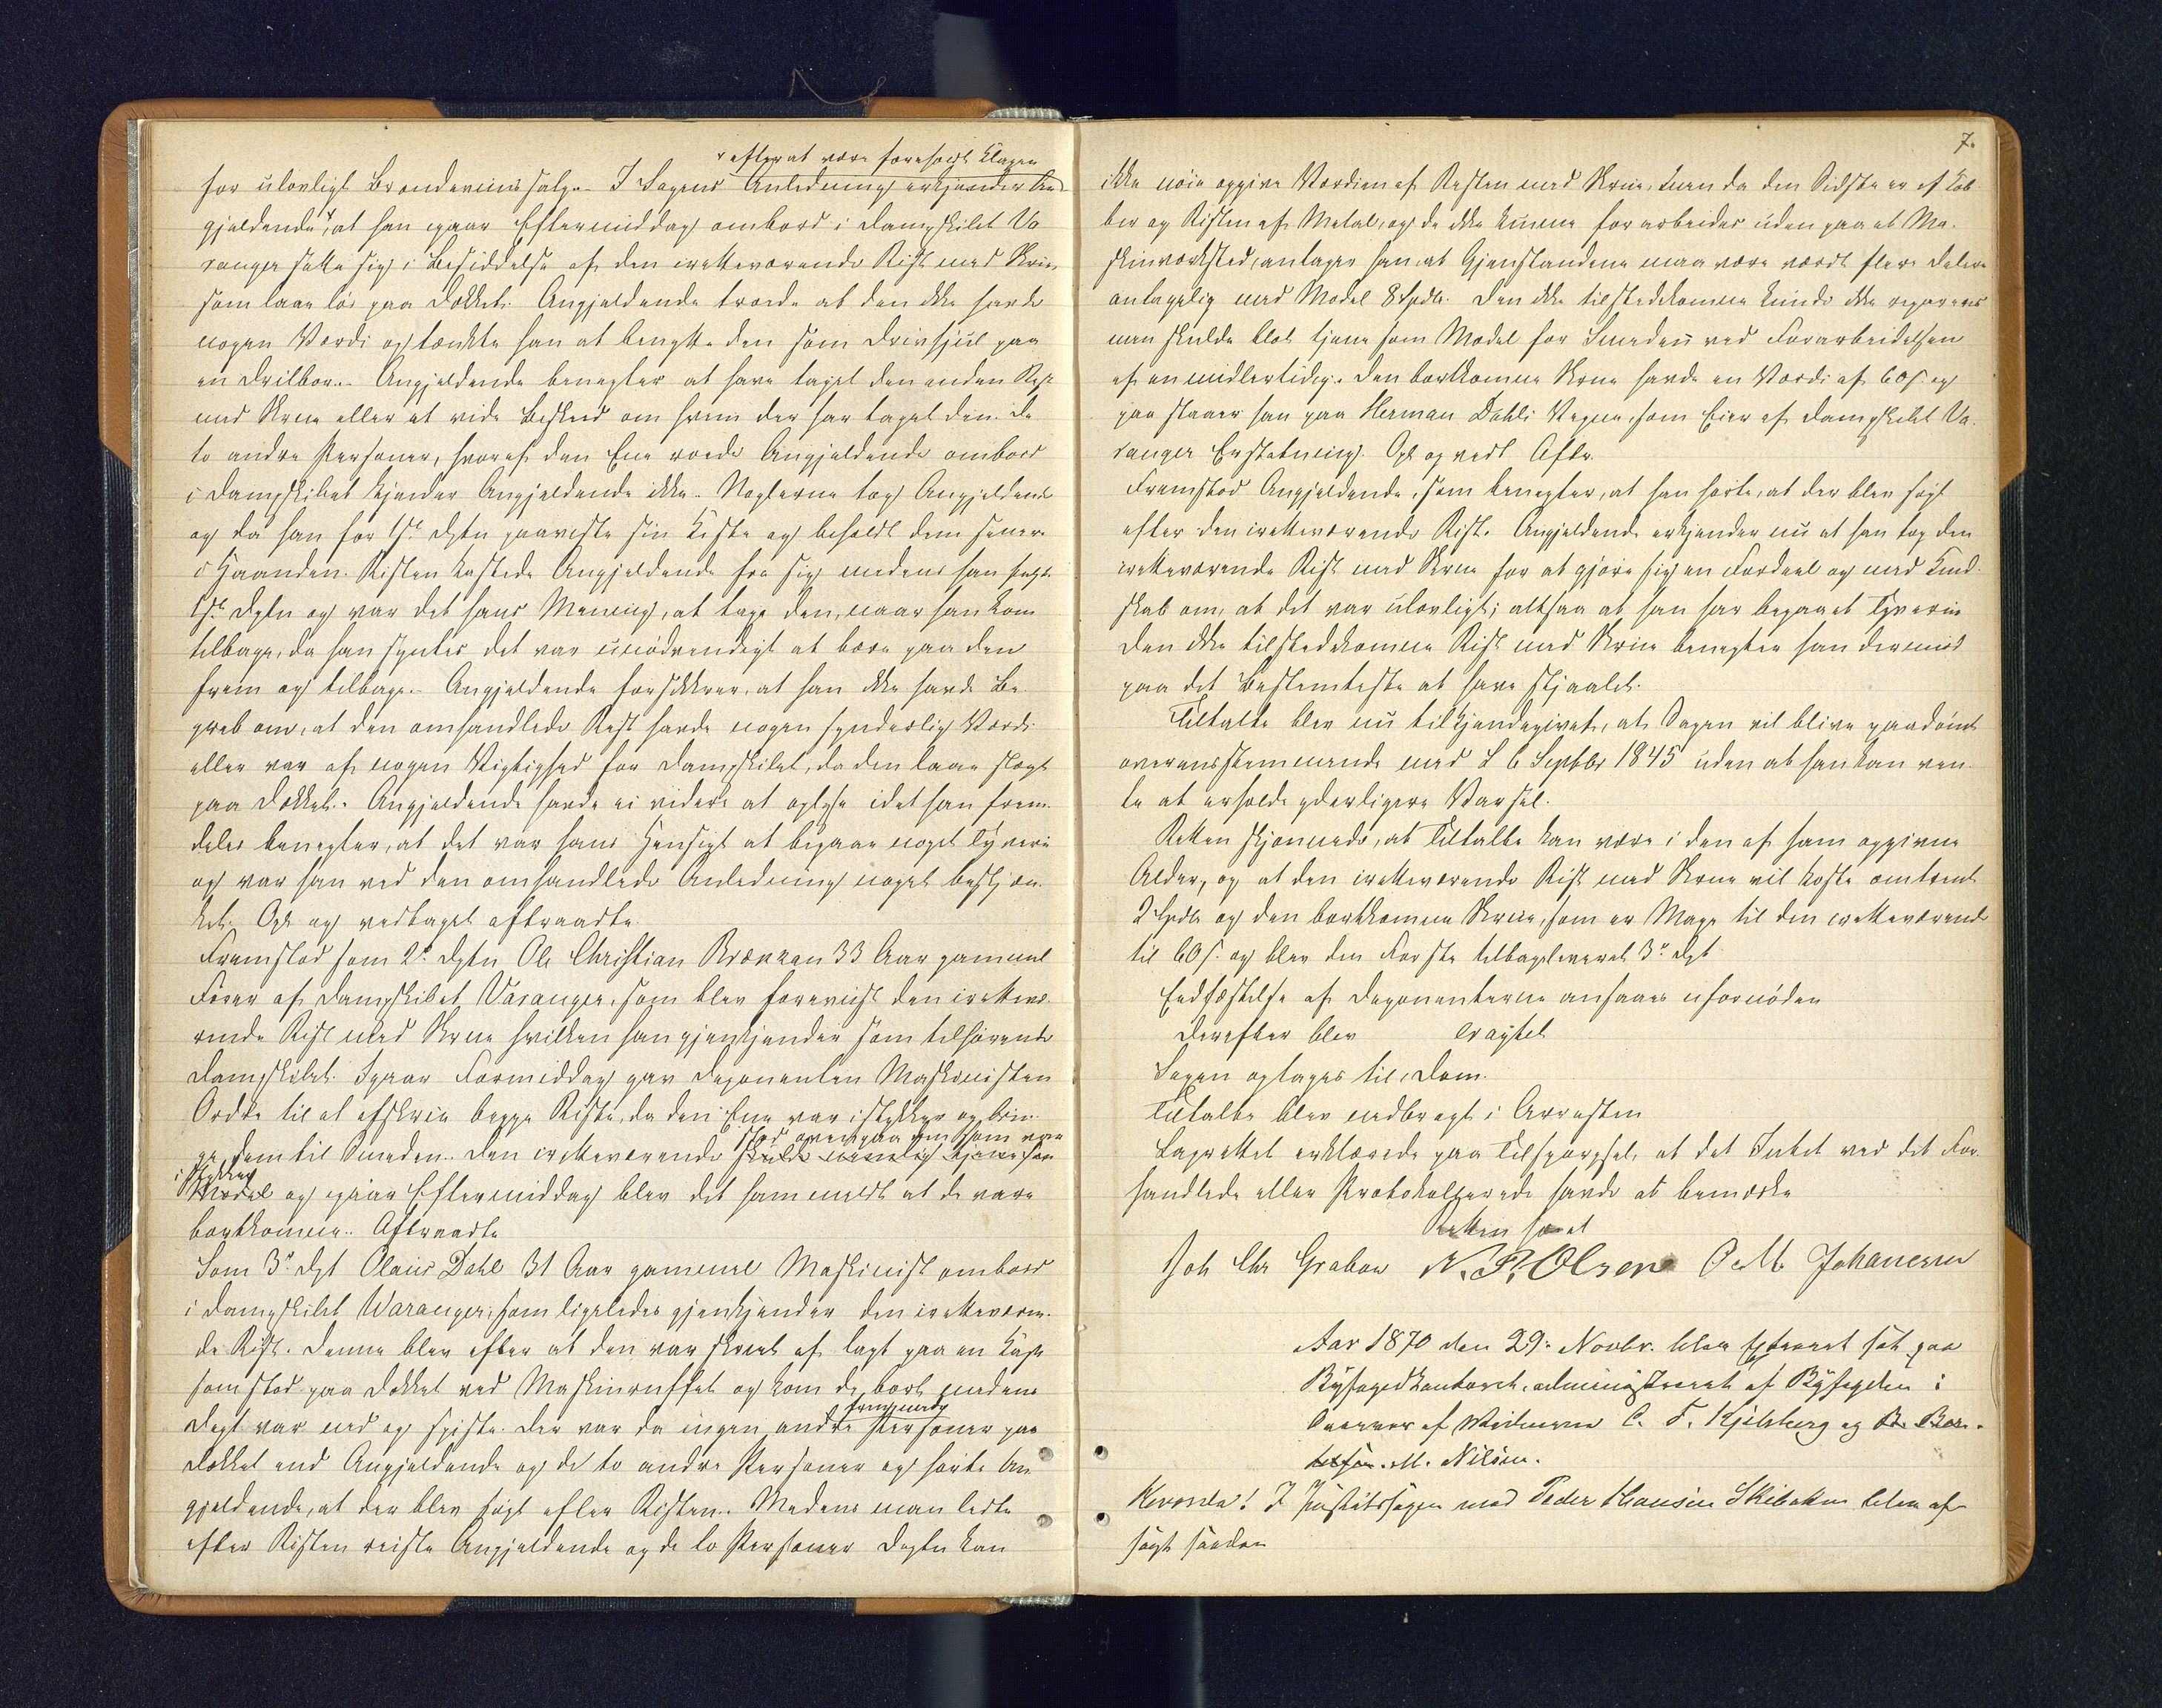 efterat være forehold Klagen
for ulovligt Brændeviinssalg. I Sagens Anledning erkjender An
gjeldende, at han igaar Eftermiddag ombord i Dampskibet Va
ranger satte sig i Besiddelse af den iretteværende Rist med Skrue
som laae løs paa Dækket. Angjeldende troede at den ikke havde
nogen Værdi og tænkte han at benytte den som Drivhjul paa
en Drilbor. Angjeldende benegter at have taget den anden Rist
med Skrue eller at vide Besked om hvem der har taget den. De
to andre Personer, hvoraf den Ene roede Angjeldende ombord
i Dampskibet kjender Angjeldende ikke. Nøglerne tog Angjeldende
og da han for 1ste Dptn paaviste sin Kiste og beholdt dem senere
i Haanden. Risten kastede Angjeldende fra sig medens han fulgte
1ste Dptn og var det hans Mening, at tage den, naar han kom
tilbage, da han syntes det var unødvendigt at bære paa den
frem og tilbage. Angjeldende forsikkrer, at han ikke havde Be
greb om, at den omhandlede Rist havde nogen synderlig Værdi
eller var af nogen Vigtighed for Dampskibet, da den laae slængt
paa Dækket. Angjeldende havde ei videre at oplyse idet han frem
deles benegter, at det var hans Hensigt at begaae noget Tyveri
og var han ved den omhandlede Anledning noget beskjæn
ket. Opl og vedtaget aftraadte
Fremstod som 2den Dptn Ole Christian 33 Aar gammel
Fører af Dampskibet Varanger, som blev foreviist den irettevæ
rende Rist med Skrue hvilken han gjenkjender som tilhørende
Dampskibet. Igaar Formiddag gav Deponenten Maskinisten
Ordre til at afskrue begge Riste, da den Ene var istykker og brin
stod ovenpaa den som var
ge dem til Smeden. Den iretteværende skulde nemlig tjene som
i Stykker
Model og igaar Eftermiddag blev det ham meldt at de vare
bortkomne. Aftraadte
Som 3die Dpt Olaus Dahl 31 Aar gammel Maskinist ombord
i Dampskibet Waranger, som ligeledes gjenkjender den iretteværen
de Rist. Denne blev efter at den var skruet af lagt paa en Kasse
som stod paa Dækket ved Maskinruffet og kom de bort medens
fremmede
Dept var ned og spiste. Der var da ingen andre Personer paa
Dækket end Angjeldende og de to andre Personer og hørte An
gjeldende, at der blev søgt efter Risten. Medens man ledte
efter Risten reiste Angjeldende og de to Personer Deptn kan
7.
ikke nøie opgive Værdien af Risten med Skrue, men da den Sidste er af Kob
ber og Risten af Metal, og de ikke kunne forarbeides uden paa et Ma
skinværksted, antager han, at Gjenstandene maa være værdt flere Daler
antagelig med Model 8 Spdlr. Den ikke tilstedekomne kunde ikke repareres
men skulde blot tjene som Model for Smeden ved Forarbeidelsen
af en midlertidig. Den bortkomne Skrue havde en Værdi af 60 s. og
paastaaer han paa Herman Dahls Vegne, som Eier af Dampskibet Va
ranger Erstatning. Opl og vedt Aftr.
Fremstod Angjeldende, som benegter, at han hørte, at der blev søgt
efter den iretteværende Rist. Angjeldende erkjender nu at han tog den
iretteværende Rist med Skrue for at gjøre sig en Fordeel og med Kund
skab om, at det var ulovligt; altsaa at han har begaaet Tyverie
Den ikke tilstedekomne Rist med Skrue benegter han derimod
paa det Bestemteste at have stjaalet.
Tiltalte blev nu tilkjendegivet, at Sagen vil blive paadømt
overensstemmende med L 6 Septbr 1845 uden at han kan ven
te at erholde yderligere Varsel.
Retten skjønnede, at Tiltalte kan være i den af ham opgivne
Alder, og at den iretteværende Rist med Skrue vil koste omtrent
2 Spdlr og den bortkomne Skrue, som er Mage til den iretteværende
til 60 s. og blev den Første tilbageleveret 3die Dpt
Eedfæstelse af Deponenterne ansaaes ufornøden
Derefter blev eragtet
Sagen optages til Dom.
Tiltalte blev nedbragt i Arresten
Lagrettet erklærede paa Tilspørgsel, at det Intet ved det For
handlede eller Protokollerede havde at bemærke
Retten hævet
Joh Chr Grabow N. P. Olsen O. M. Johannesen
Aar 1870 den 29. Novbr. blev Extraret sat paa
Byfogedkontoret, administreret af Byfogden i
Overvær af Vidnerne C. F. Kjelsberg og B. Ber-
telsen. M. Nilsen.
Hvorda! I Justitssagen mod Peder Hansen Skibakm blev af
sagt saadan